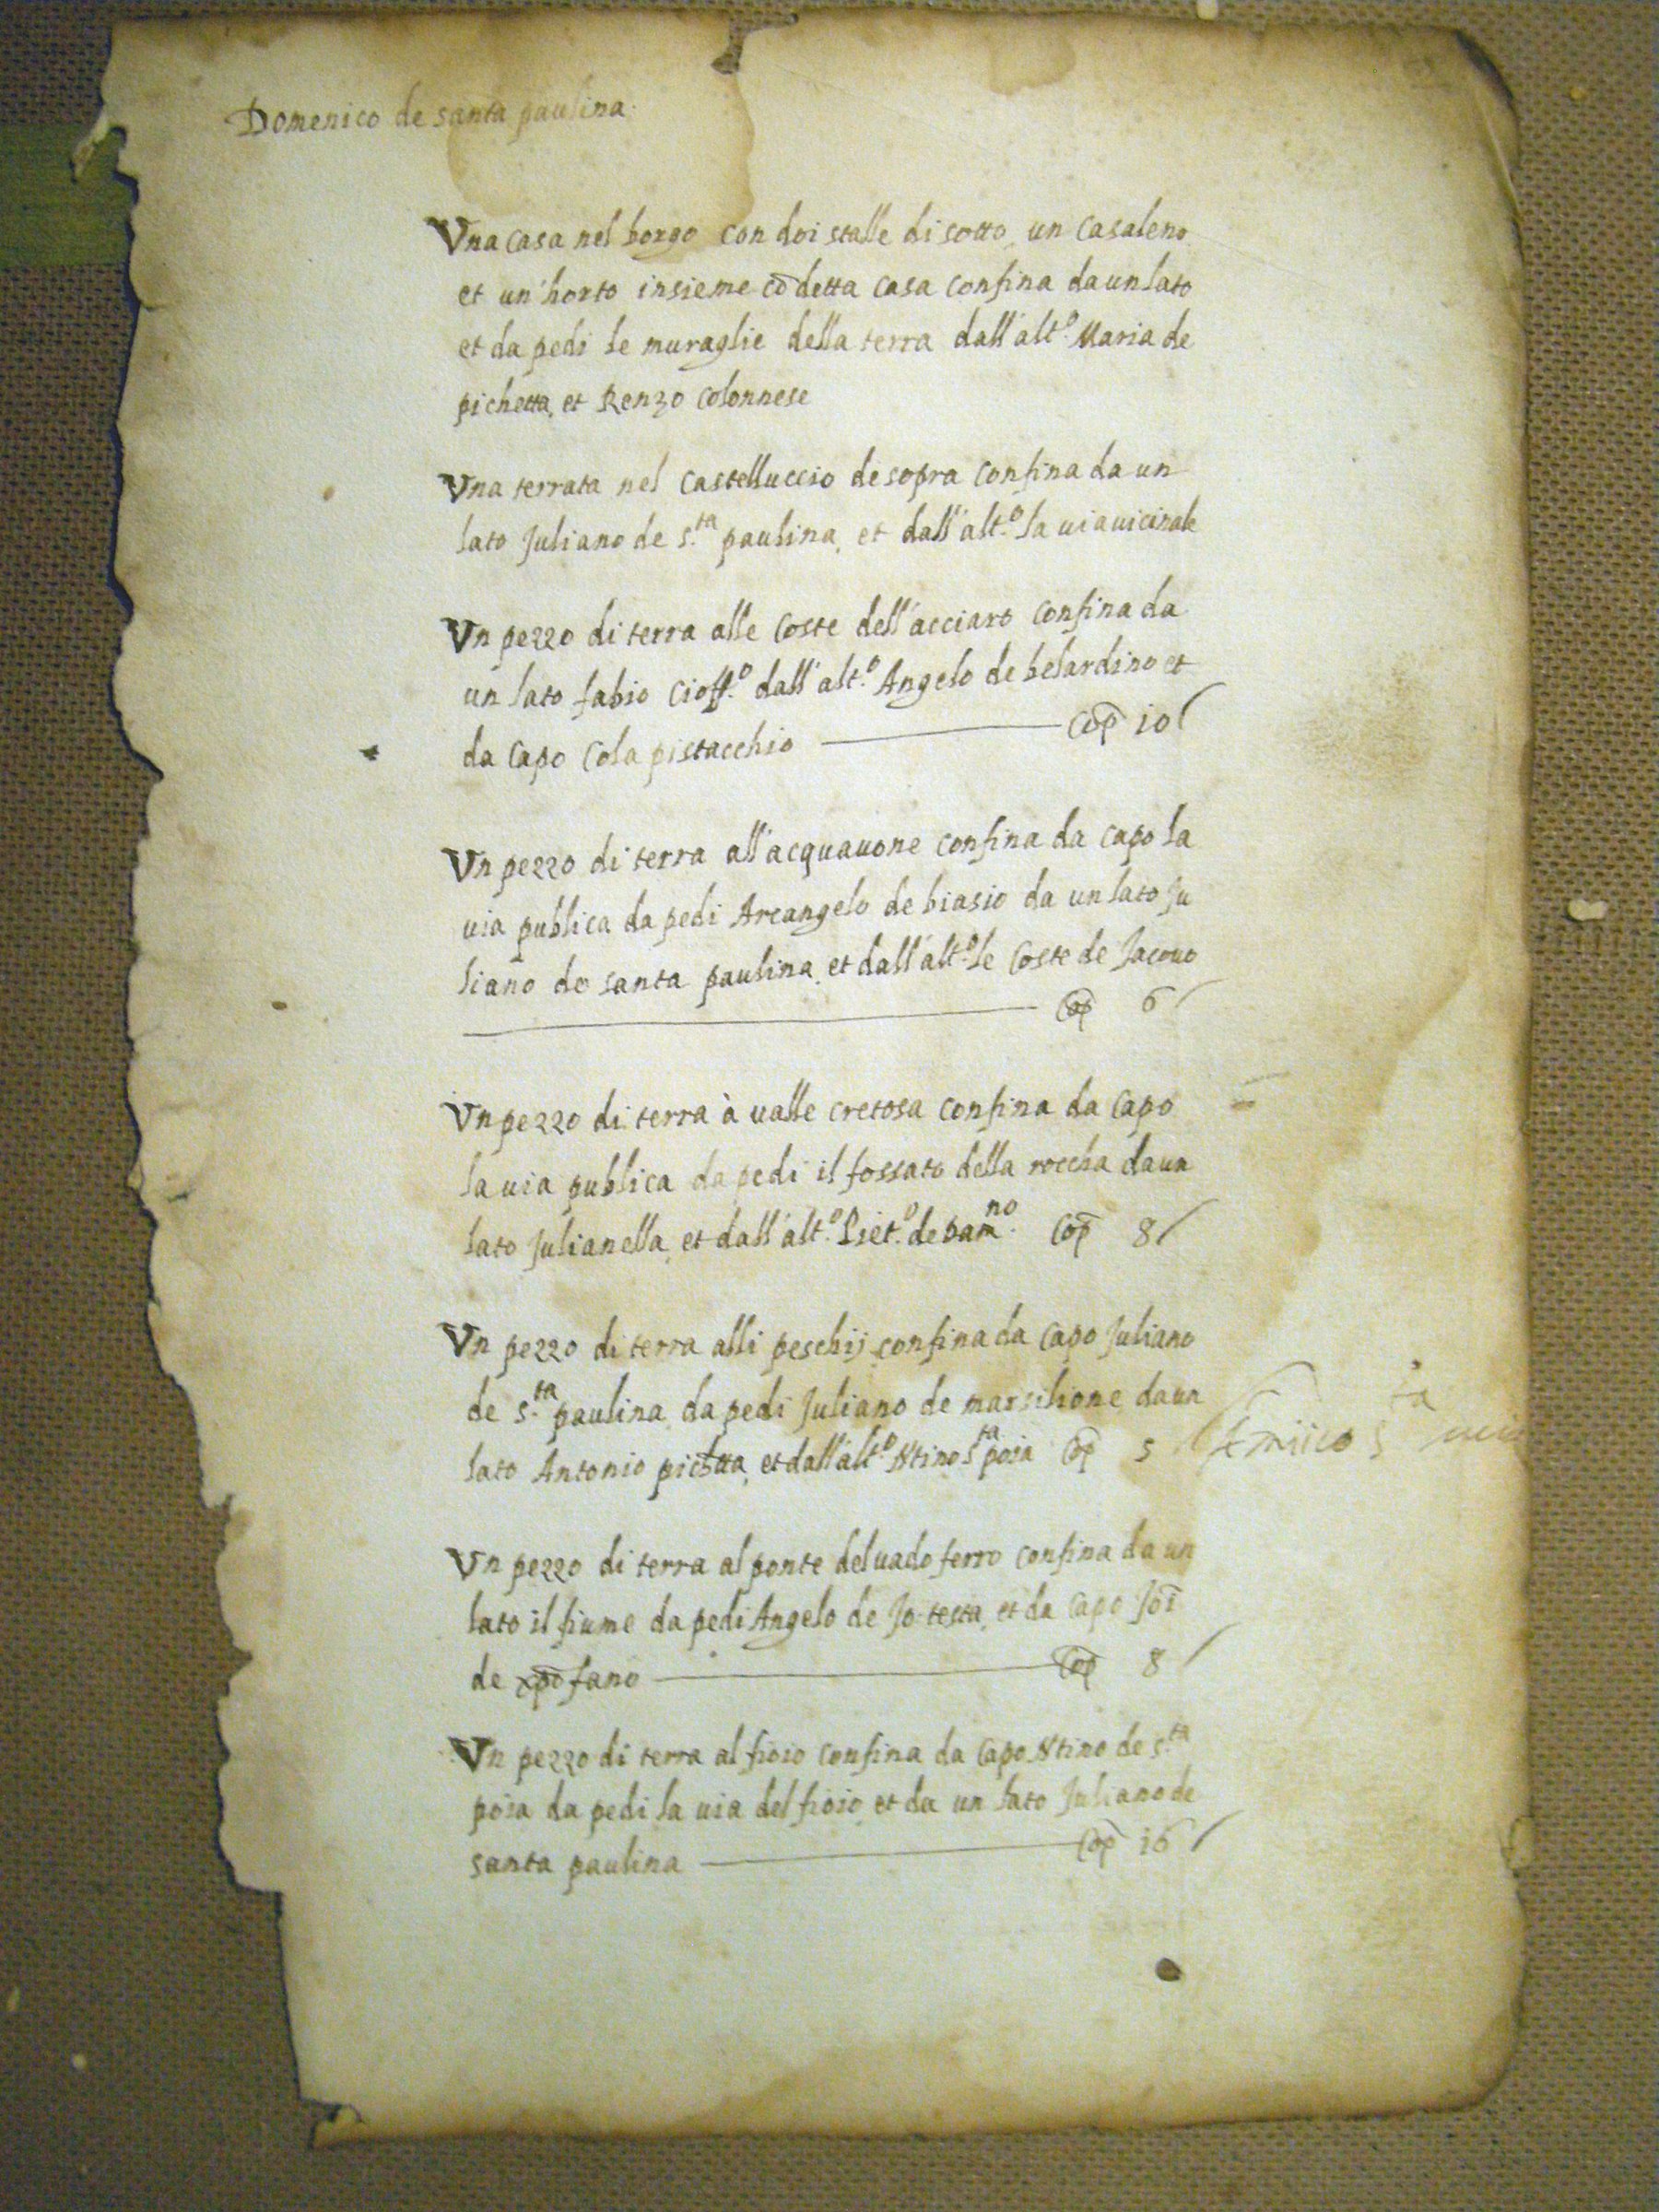 Domenico de santa paulina.
Vna casa nel borgo con doi stalle di sotto, un casaleno
et un'horto insieme cō detta casa confina da un lato
et da pedi le muraglie della terra dall'alt.º Maria de
pichetta, et Renzo Colonnese
Vna terrata nel castelluccio de sopra confina da un
lato Juliano de s.ta paulina, et dall'alt.º la uia uicinale
Vn pezzo di terra alle coste dell'acciaro confina da
un lato fabio Cioff.º dall'alt.º Angelo de belardino et
da capo Cola pistacchio Cop̄ 10
Vn pezzo di terra all'acquauone confina da capo la
uia publica da pedi Arcangelo de biasio da un lato Ju
liano de santa paulina, et dall'alt.º le coste de Jacouo
Cop̄ 6
Vn pezzo di terra à ualle cretosa confina da capo
la uia publica da pedi il fossato della roccha da un
lato Julianella, et dall'alt.º Piet.º de Cop̄ 8
Vn pezzo di terra alli peschij confina da capo Juliano
de s.ta paulina da pedi Juliano de marsilione da un
lato Antonio pichetta, et dall'alt.º s.ta poia Cop̄ 5
Vn pezzo di terra al ponte del uado ferro confina da un
lato il fiume da pedi Angelo de Jo: testa, et da capo Joī
de xpōfano Cop̄ 8
Vn pezzo di terra al fioio confina da capo de s.ta
poia da pedi la uia del fioio, et da un lato Juliano de
santa paulina Cop̄ 16